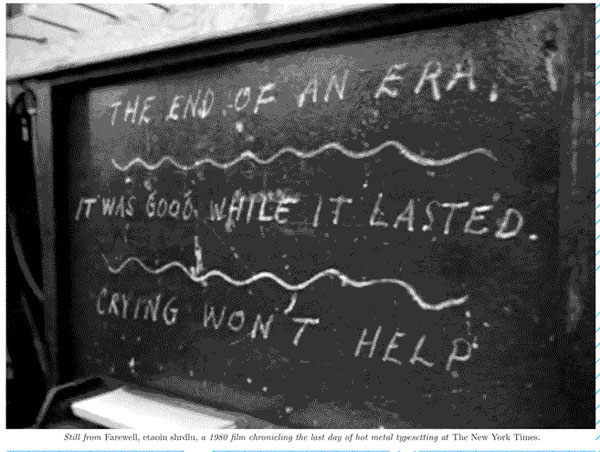 THE END OF AN ERA.
IT WAS GOOD WHILE IT LASTED.
CRYING WON'T HELP
Still from Farewell, etaoin shrdlu, a 1980 film chronicling the last day of hot metal typesetting at The New York Times.